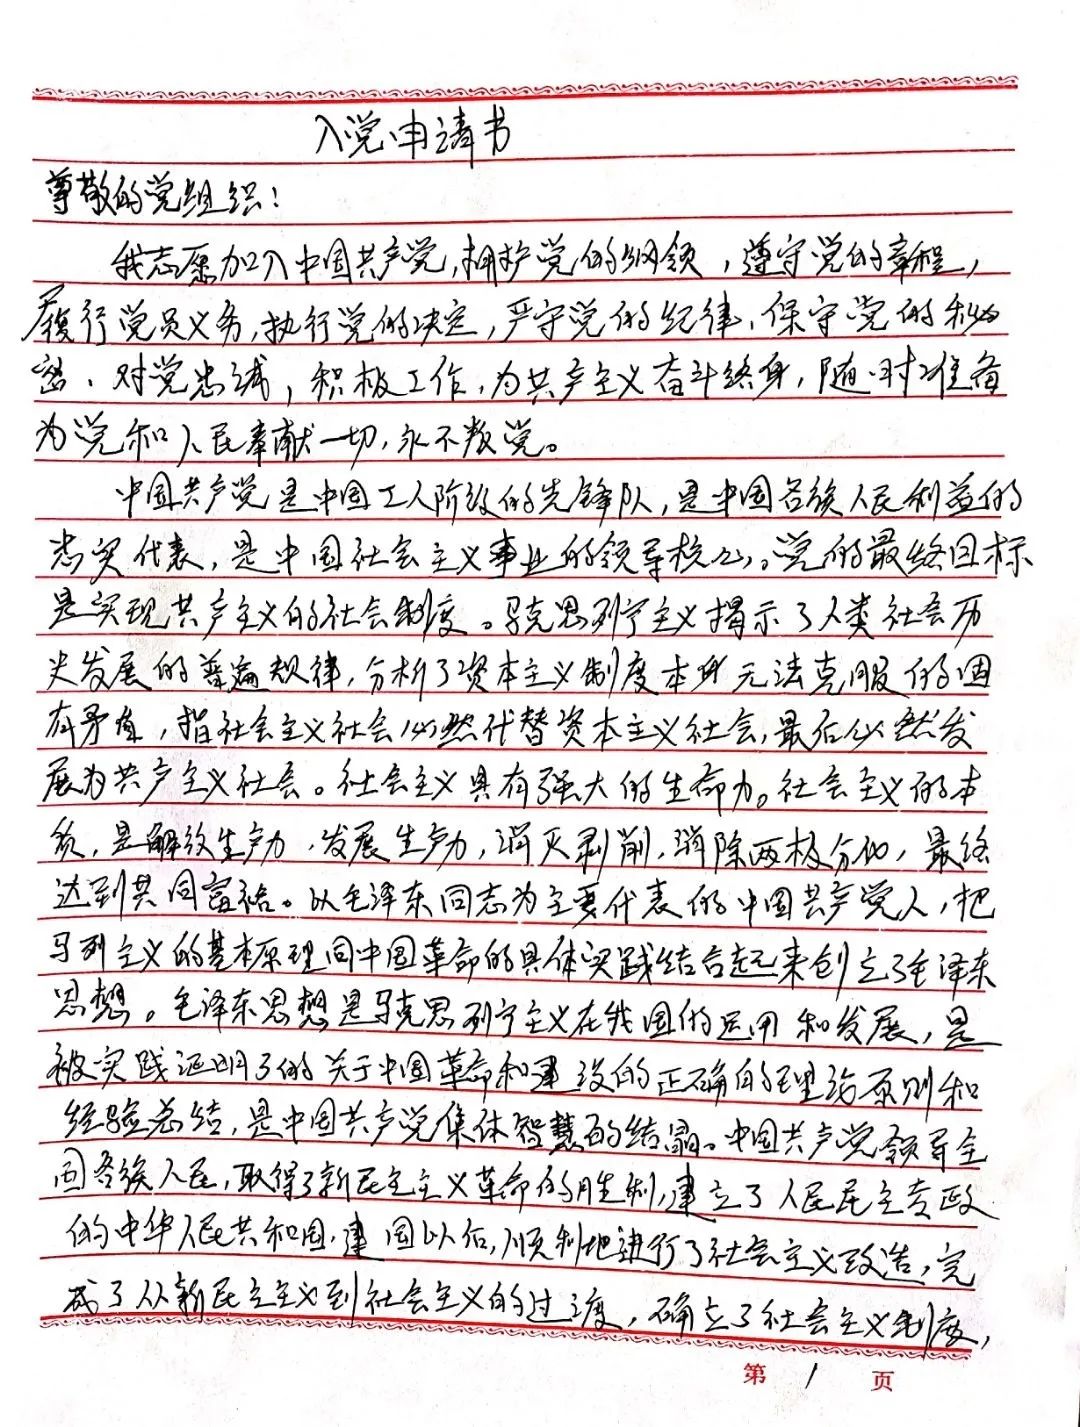 入党申请书
尊敬的党组织：
我志愿加入中国共产党，拥护党的纲领，遵守党的章程，
履行党员义务，执行党的决定，严守党的纪律，保守党的秘
密，对党忠诚，积极工作，为共产主义奋斗终身，随时准备
为党和人民奉献一切，永不叛党。
中国共产党是中国工人阶级的先锋队，是中国各族人民利益的
忠实代表，是中国社会主义事业的领导核心。党的最终目标
是实现共产主义的社会制度。马克思列宁主义揭示了人类社会历
史发展的普遍规律，分析了资本主义制度本身无法克服的固
有矛盾，指社会主义社会必然代替资本主义社会，最后必然发
展为共产主义社会。社会主义具有强大的生命力。社会主义的本
质，是解放生产力，发展生产力，消灭剥削，消除两极分化，最终
达到共同富裕。以毛泽东同志为主要代表的中国共产党人，把
马列主义的基本原理同中国革命的具体实践结合起来创立了毛泽东
思想。毛泽东思想是马克思列宁主义在我国的运用和发展，是
被实践证明了的关于中国革命和建设的正确的理论原则和
经验总结，是中国共产党集体智慧的结晶。中国共产党领导全
国各族人民，取得了新民主主义革命的胜利，建立了人民民主专政
的中华人民共和国，建国以后，顺利地进行了社会主义改造，完
成了从新民主主义到社会主义的过渡，确立了社会主义制度，
第1页